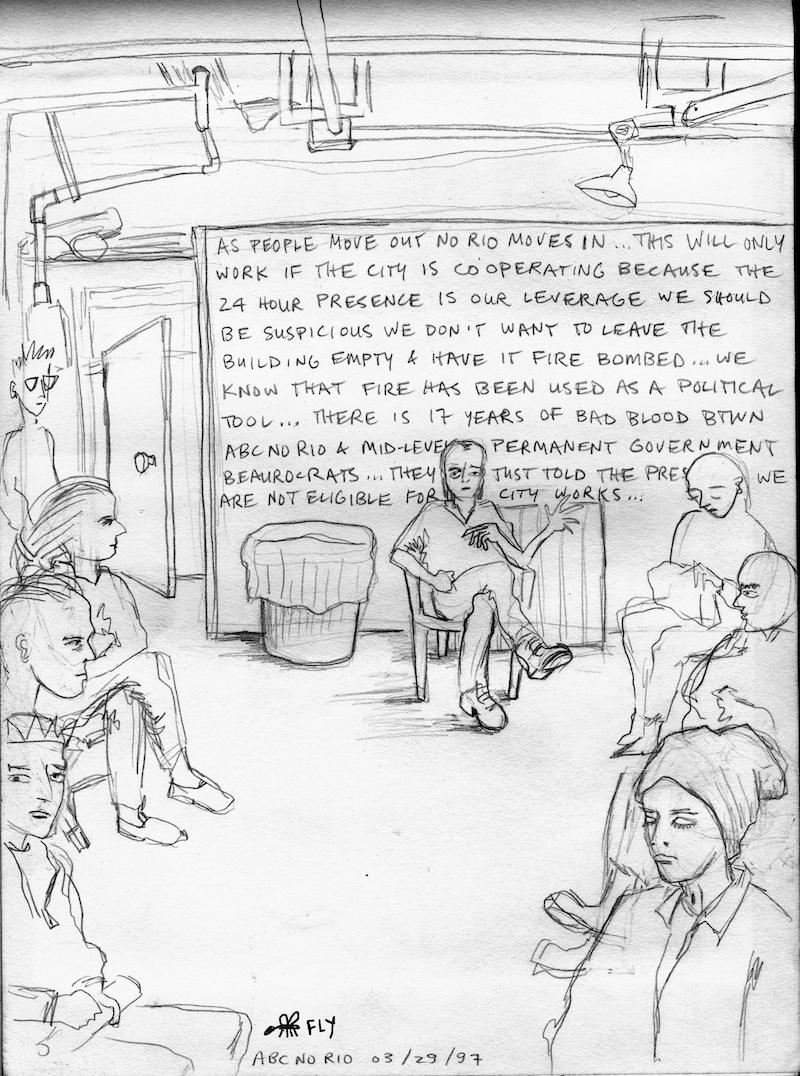 AS PEOPLE MOVE OUT NO RIO MOVES IN... THIS WILL ONLY
WORK IF THE CITY IS CO'OPERATING BECAUSE THE
24 HOUR PRESENCE IS OUR LEVERAGE WE SHOULD
BE SUSPICIOUS WE DON'T WANT TO LEAVE THE
BUILDING EMPTY & HAVE IT FIRE BOMBED... WE
KNOW THAT FIRE HAS BEEN USED AS A POLITICAL
TOOL... THERE IS 17 YEARS OF BAD BLOOD BTWN
ABC NO RIO & MID-LEVE PERMANENT GOVERNMENT
BEAUROCRATS... THEY JUST TOLD THE PRES WE
ARE NOT ELIGIBLE FOR CITY WORKS...
FLY
ABC NO RIO 03/29/97